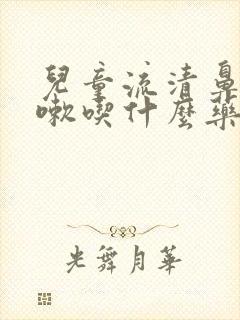 兒童流清鼻
嗽喫什麼藥
光舞月華